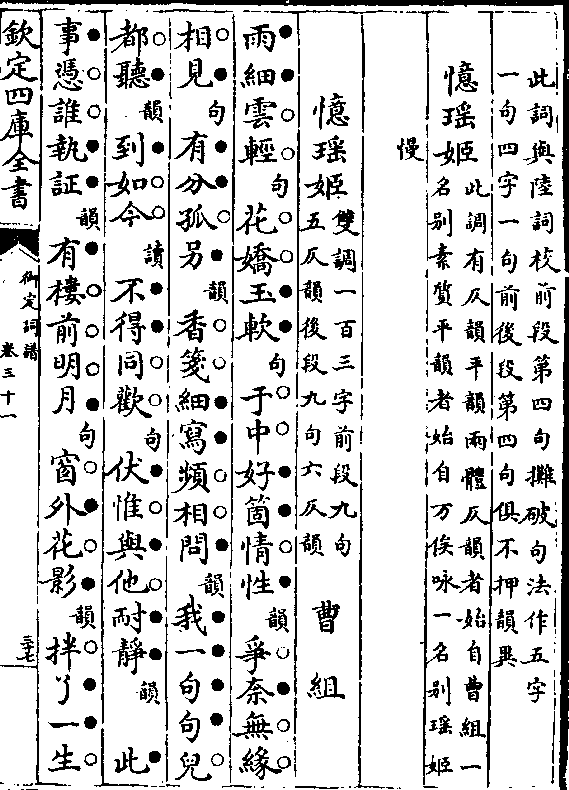 此詞與陸詞校前段第四句攤破句法作五字
一句四字一句前後段第四句俱不押韻異
憶瑶姬 此調有仄韻平韻兩體仄韻者始自曹組一
名别素質平韻者始自万俟咏一名别瑶姬
慢
憶瑶姬 雙調一百三字前段九句
五仄韻後段九句六仄韻 曹組
雨細雲輕句花嬌玉軟句于中好箇情性韻爭奈無緣
相見句有分孤另韻香箋細寫頻相問韻我一句句兒
都聽韻到如今讀不得同歡句伏惟與他耐静韻此
事憑誰執証韻有樓前明月句窗外花影韻拌了一生
欽定四庫全書
御定詞譜
卷三十一
三七